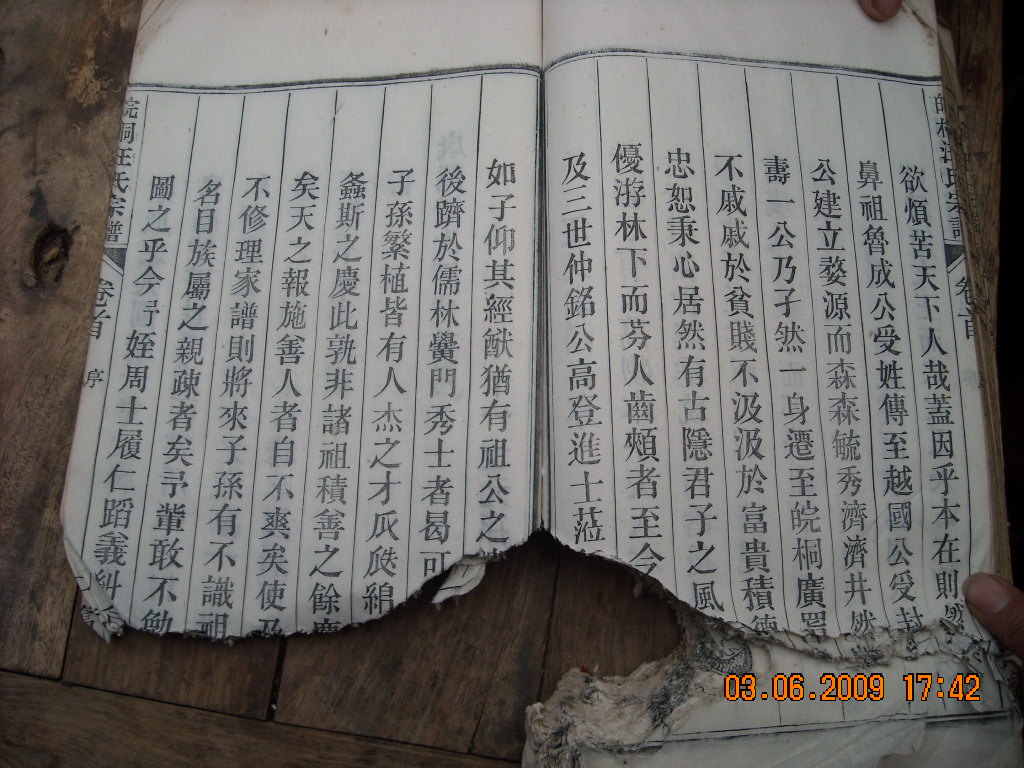 欲煩苦天下人哉蓋因乎本在則然
鼻祖魯成公受姓傳至越國公受封
公建立婺源而森森毓秀濟濟井然
壽一公乃孑然一身遷至皖桐廣罗
不戚戚於貧賤不汲汲於富貴積德
忠恕秉心居然有古隱君子之風
優游林下而芬人齒頰者至今
及三世仲銘公高登進士蒞
如子仰其經猷猶有祖公之
後躋於儒林黌門秀士者曷可
子孫繁植皆有人杰之才瓜瓞綿
螽斯之慶此孰非諸祖積善之餘慶
矣天之報施善人者自不爽矣使及
不修理家譜則將來子孫有不識祖
名目族屬之親疎者矣予軰敢不勉
圖之乎今予姪周士履仁蹈義糾
皖桐汪氏宗譜
卷首
序
03.06.2009 17:42